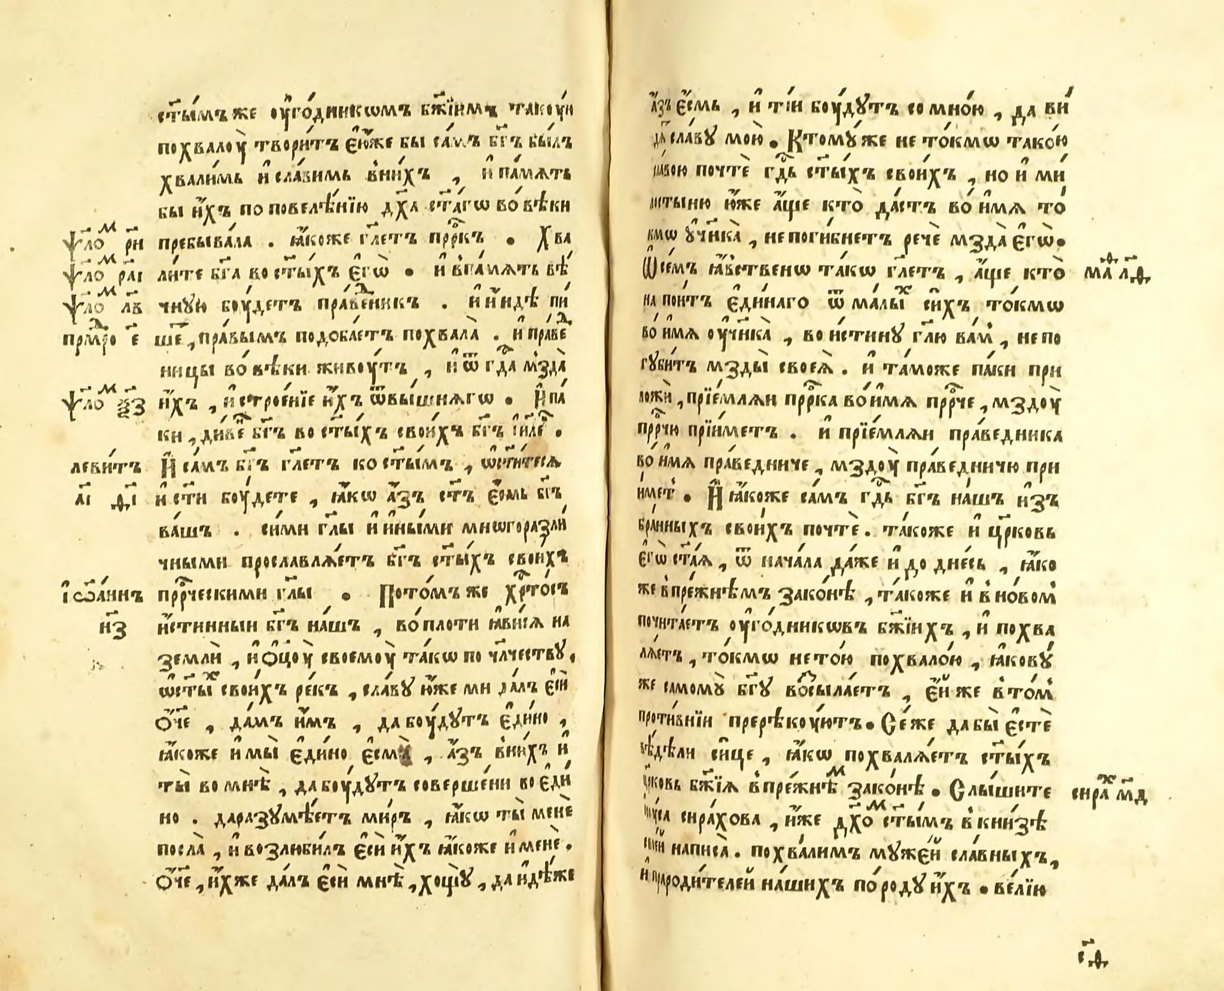 ст҃ымъ же оу҆го́дникѡмъ бж҃їимъ такоуи
похвалоу̀ твори́тъ є҆ю́же бы са́мъ бг҃ъ бы́лъ
хвали́мь и҆ сла́вимь вни́хъ , и҆ па́мять
бы и҆́хъ по повелѣ́нїю дх҃а ст҃а́гѡ во вѣ́ки
ѱало́м ри пребыва́ла . ꙗ҆́коже гл҃етъ прⷪ҇ркъ . Хва
ѱало́м раі ли́те бг҃а во ст҃ы́хъ є҆гѡ̀ . и҆ в па́мять вѣ́
ѱало́м лв чную боу́детъ пра́ведникъ . и҆ и҆ндѣ̀ пи́
прмⷣро є шѐ , пра́вымъ подоба́етъ похвала̀ . и҆ пра́ведⷣ
ницы во вѣ́ки живоу́тъ , и҆ ѿ гдⷭ҇а мзда̀
ѱало́м ѯз и҆́хъ , и҆ строе́нїе и҆́хъ ѿ вы́шнягѡ . И҆ па́
ки , ди́венъ бг҃ъ во ст҃ы́хъ свои́хъ бг҃ъ і҆и҃левⷭ҇ .
леви́тъ И҆ са́мъ бг҃ъ гл҃етъ ко ст҃ы́мъ , ѡ҆ст҃и́теся
аі ді и҆ ст҃и боу́дете , ꙗ҆́кѡ а҆́зъ ст҃ъ є҆́смь бг҃ъ
ва́шъ . си́ми гл҃ы и҆ и҆ны́ми мнѡгоразли́
чными прославля́етъ бг҃ъ ст҃ы́хъ свои́хъ
і҆ѡа́ннъ прⷪ҇рческими гл҃ы . Пото́мъ же хрⷭ҇то́съ
из и҆́стинныи бг҃ъ на́шъ , во пло́ти ꙗ҆ви́ся на
землѝ , и҆ ѻ҆ц҃оу̀ своемоу̀ та́кѡ по чл҃честву ,
ѡ҆ ст҃ы́х свои́хъ ре́къ , сла́ву ю҆́же ми да́лъ є҆сѝ
ѻ҆́ч҃е , да́мъ и҆̀мъ , да боу́дутъ є҆ди́но ,
ꙗ҆́коже и҆ мы̀ є҆ди́но є҆смѧ̀ , а҆́зъ вни́хъ и҆
ты̀ во мнѣ̀ , да боу́дутъ соверше́ни во є҆ди́
но . да разумѣ́етъ ми́ръ , ꙗ҆́кѡ ты̀ менѐ
посла̀ , и҆ возлюби́лъ є҆сѝ и҆́хъ ꙗ҆́коже и҆ менѐ .
ѻ҆́ч҃е , и҆́хже да́лъ є҆сѝ мнѣ̀ , хощу̀ , да и҆дѣ́же
а҆́зъ є҆́смь , и҆ ті́и боу́дутъ со мно́ю , да ви́
дѧ сла́ву мою̀ . Ктому́же не то́кмѡ тако́ю
сла́вою почтѐ гдⷭ҇ь ст҃ы́хъ свои́хъ , но и҆ ми́
лостыню и҆́же а҆́ще кто̀ да́стъ во и҆́мѧ то́
кмѡ у҆чн҃ика̀ , не поги́бнетъ речѐ мзда̀ є҆гѡ̀ .
Ѡ҆ се́мъ ꙗ҆́вственѡ та́кѡ гл҃етъ , а҆́ще кто̀ маⷴ҇ лд
напои́тъ є҆ди́наго ѿ ма́лых си́хъ то́кмѡ
во и҆́мѧ оу҆чн҃ика̀ , во и҆́стину гл҃ю ва́м , не по
гу́битъ мзды̀ своеѧ̀ . и҆ та́може па́ки при
ложѝ , прїе́млѧи прⷪ҇рка во и҆́мѧ прⷪ҇рче , мздоу̀
прⷪ҇рчи прїи́метъ . и҆ прїе́млѧи пра́ведника
во и҆́мѧ пра́ведниче , мздоу̀ пра́ведничю прі
и́метъ . И҆ ꙗ҆́коже са́мъ гдⷭ҇ь бг҃ъ на́шъ и҆з
бра́нныхъ свои́хъ почтѐ . та́коже и҆ цр҃ковь
є҆гѡ̀ ст҃а́ѧ , ѿ нача́ла да́же и҆ до дне́сь , ꙗ҆́ко
же в пре́жнѣмъ зако́нѣ , та́коже и҆ в но́вом
почита́етъ оу҆го́дникѡвъ бж҃їихъ , и҆ похва
лѧ́етъ , то́кмѡ не то́ю похвало́ю , ꙗ҆кову́
же самому̀ бг҃у возсыла́етъ , є҆́й же в то́м
проти́внїи пререкоу́ютъ . Се́же да бы̀ є҆стѐ
вѣ́дѣли си́це , ꙗ҆́кѡ похвалѧ́етъ ст҃ы́хъ
цр҃ковь бж҃їѧ в пре́жнѣм зако́нѣ . Слы́шите сира́х мд
и҆су́са сира́хова , и҆́же дх҃ом ст҃ы́мъ в кни́зѣ
свое́й написа̀ . похва́лимъ муже́й сла́вныхъ ,
и҆ пра́родителей на́шихъ по ро́ду и҆́хъ . ве́лїю
сд